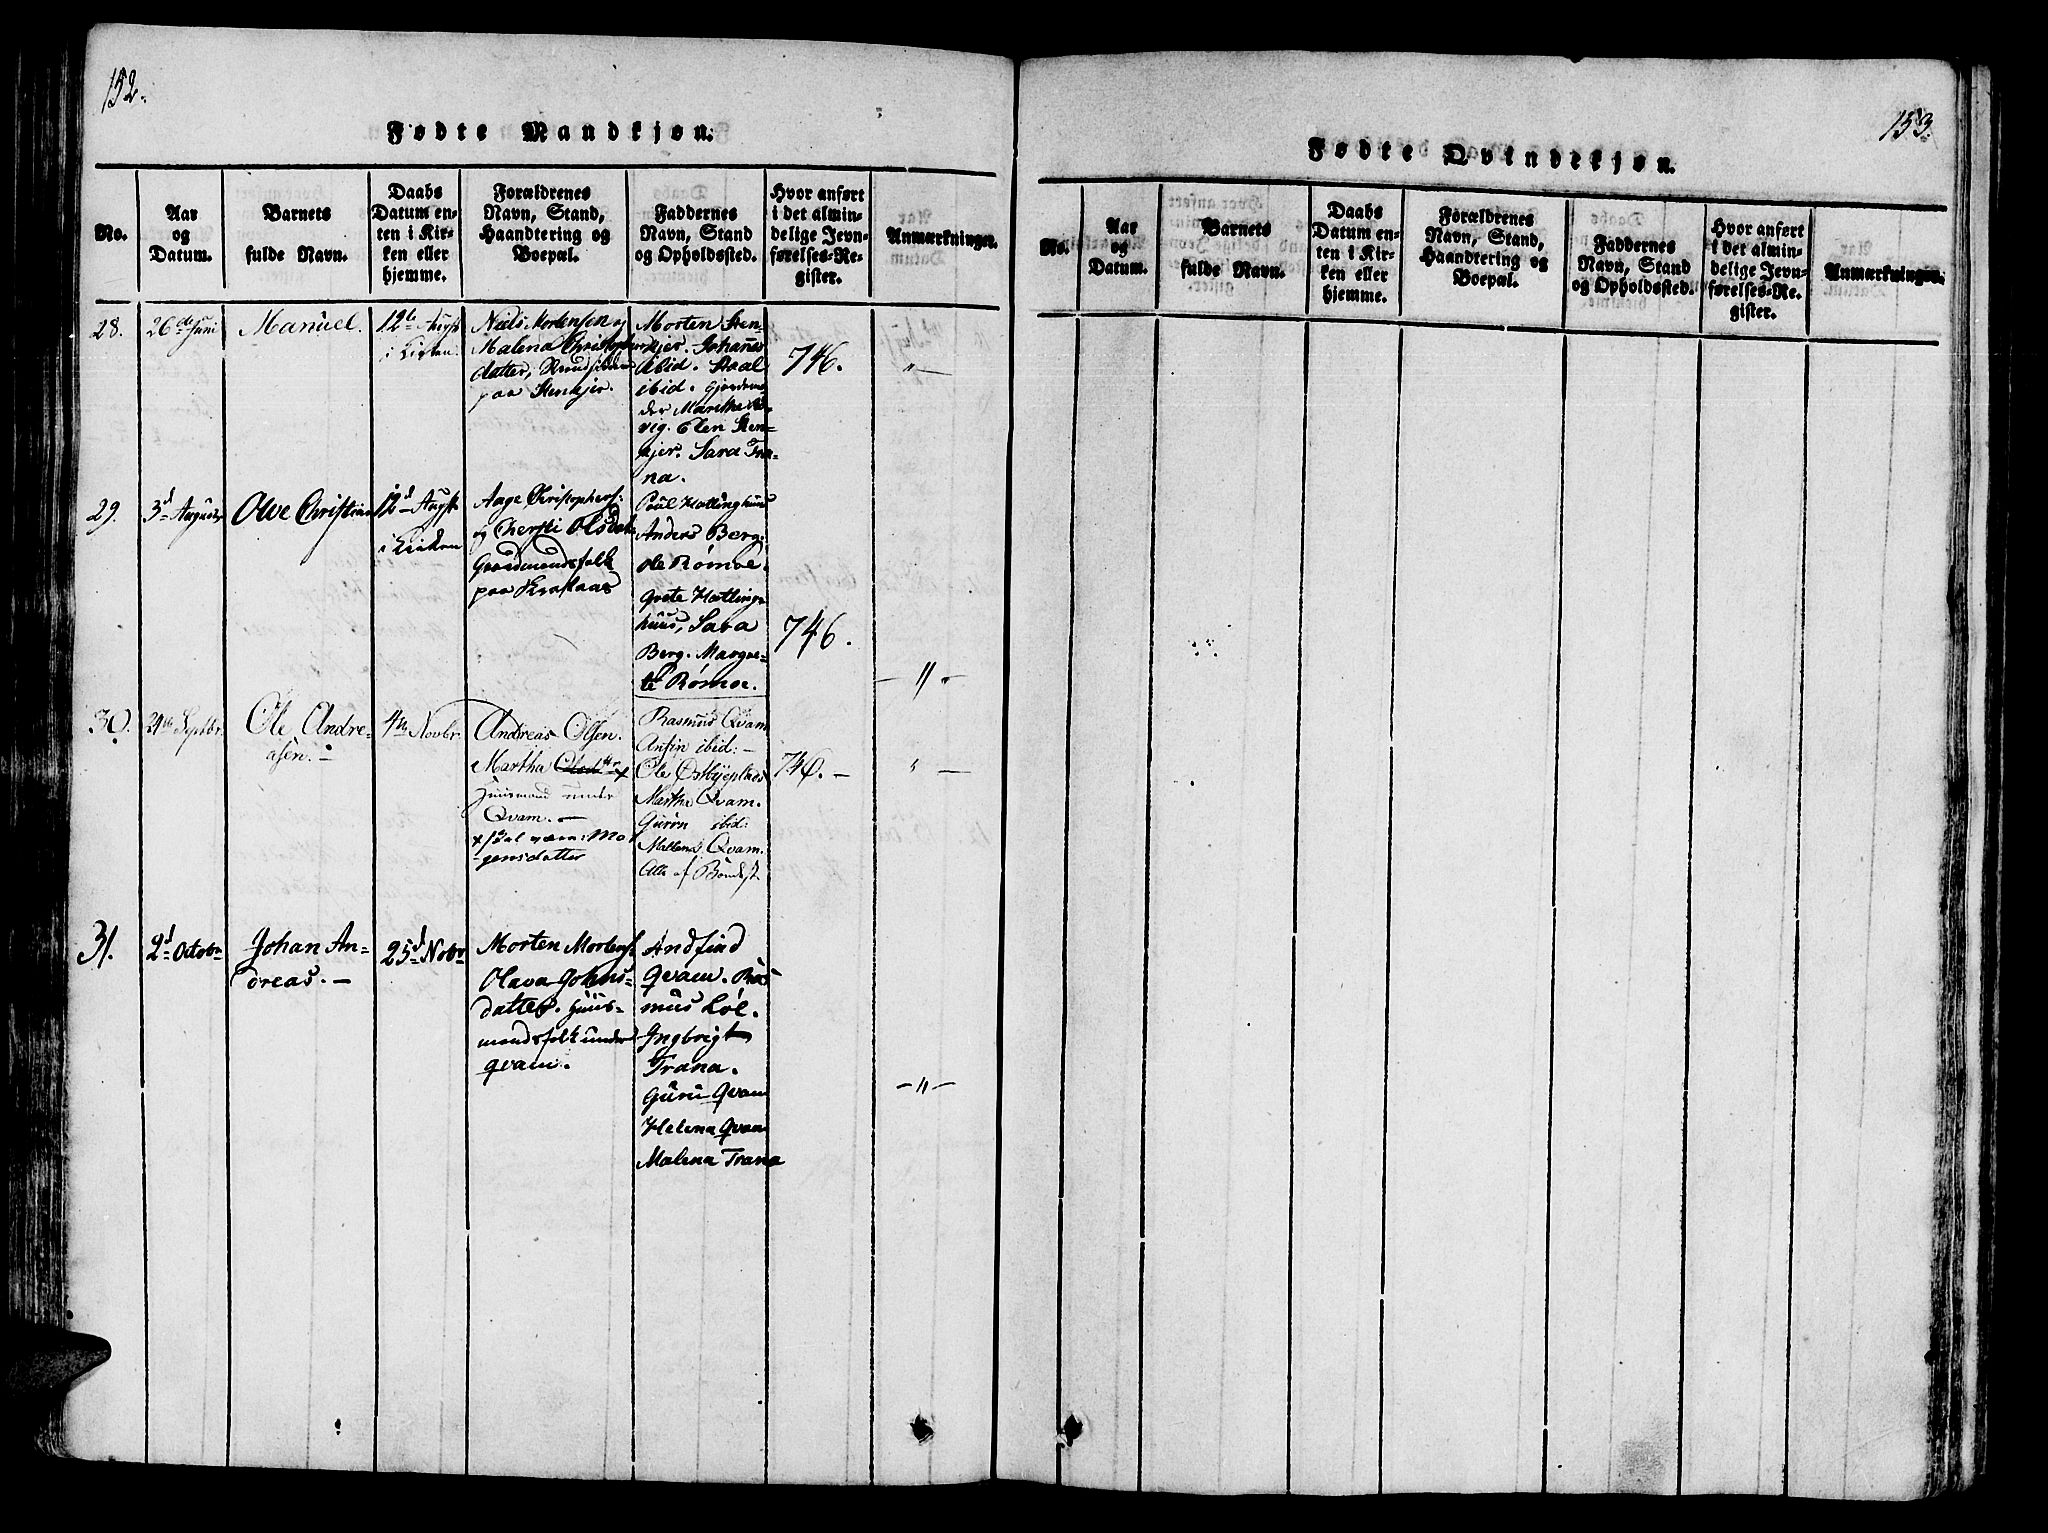 152.
Fødte Mandkjøn.
No.
Aar
og
Datum.
Barnets
fulde Navn.
Daabs
Datum en-
ten i Kir-
ken eller
hjemme.
Forældrenes
Navn, Stand,
Haandtering og
Boepæl.
Faddernes
Navn, Stand
og Opholdssted.
Hvor anført
i det almin-
delige Jevn-
førelses-Re-
gister.
Anmærkninger.
28.
26de Juni
Manuel.
12te Augst
i Kirken.
Niels Mortensen og
Malena Christopher
datter,
paa Stenkjer.
Morten Sten-
kjer. Johannes
ibid. Staal
ibid.
der Marithe
vig. Elen Sten-
kjer. Sara Tra-
na.
746.
" —
29.
3d August
Olve Christian
12d Augst
i Kirken
Aage Christophers:
og Chersti Olsdat
Gaardmandsfolk
paa
Poul Hallinghuus
Anders Berg.
Ole Rømoe.
Grete Hallings-
huus, Sara
Berg. Margre-
te Rømoe.
746.
— " —
30.
24de Septbr.
Ole Andre-
asen. —
4de Novbr.
Andreas Olsen.
Martha Olsdtr x
Huusmand under
Qvam. —
x skal være: Mo-
gensdatter
Rasmus Qvam
Anfin ibid: —
Ole
Martha Qvam.
Guron ibid:
Mallena Qvam.
Alle af Bondest
746. —
" —
31.
2d Octobr
Johan An-
dreas. —
25d Nobr
Morten Mortens:
Olava Johns-
datter. Huus-
mandsfolk under
Qvam.
Andfind
Qvam. Ras
mus Løe.
Ingbrigt
Trana.
Guru Qvam
Helena Qvam
Malena Trana
— " —
153.
Fødte Qvindekjøn.
No.
Aar
og
Datum.
Barnets
fulde Navn.
Daabs
Datum en-
ten i Kir-
ken eller
hjemme.
Forældrenes
Navn, Stand,
Haandtering og
Boepæl.
Faddernes
Navn, Stand
og Opholdssted.
Hvor anført
i det almin-
delige Jevn-
førelses-Re-
gister.
Anmærkninger.